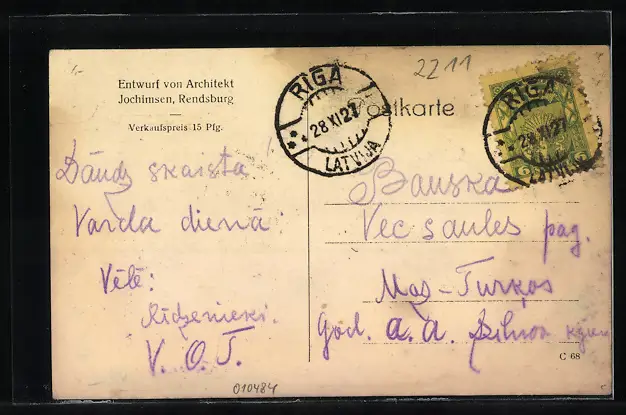 Entwurf von Architekt
Jochimsen, Rendsburg
Verkaufspreis 15 Pfg.
Postkarte
2211
RIGA
28 XI 27
LATVIJA
RIGA
28 XI 27
Daudz skaista
Varda dienā
Vēlē:
V. O. J.
Bauska
Vecsaules pag.
Maz-Turkos
God. a. d.
C 68
010484